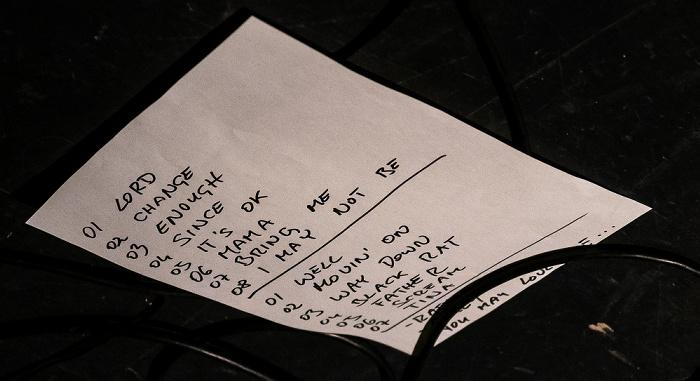 01 LORD
02 CHANGE
03 ENOUGH
04 SINCE
05 IT'S OK
06 MAMA
07 BRING ME
08 I MAY NOT BE
01 WELL
02 MOVIN' ON
03 WAY DOWN
04 BLACK RAT
05 FATHER
06 SCREAM
07 TINA
YOU MAY